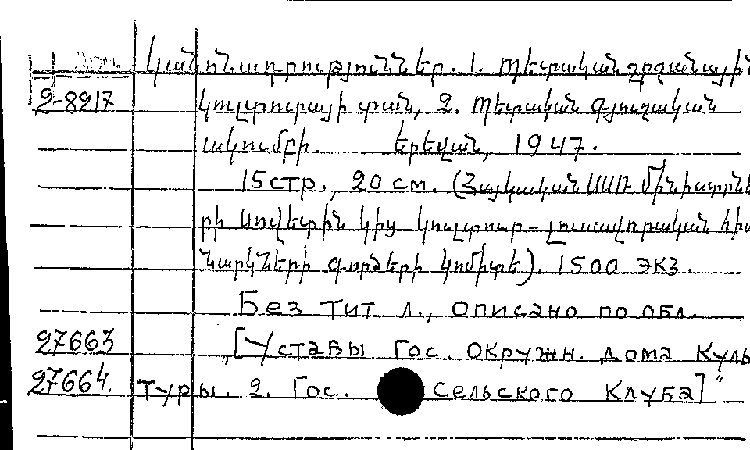 Կանոնադրություններ. 1. Պետական շրջանային
2-8217 կուլտուրայի տան, 2. Պետական գյուղական
ակումբի. Երեվան, 1947.
15 стр., 20 см. (Հայկական ՍՍՌ Մինիստրնե
րի Սովետին կից կուլտուր-լուսավորական հիմ
նարկների գործերի կոմիտե). 1500 экз.
Без тит л., описано по обл.
27663 „[Уставы Гос. окружн. дома куль
27664. туры. 2. Гос. сельского клуба]"